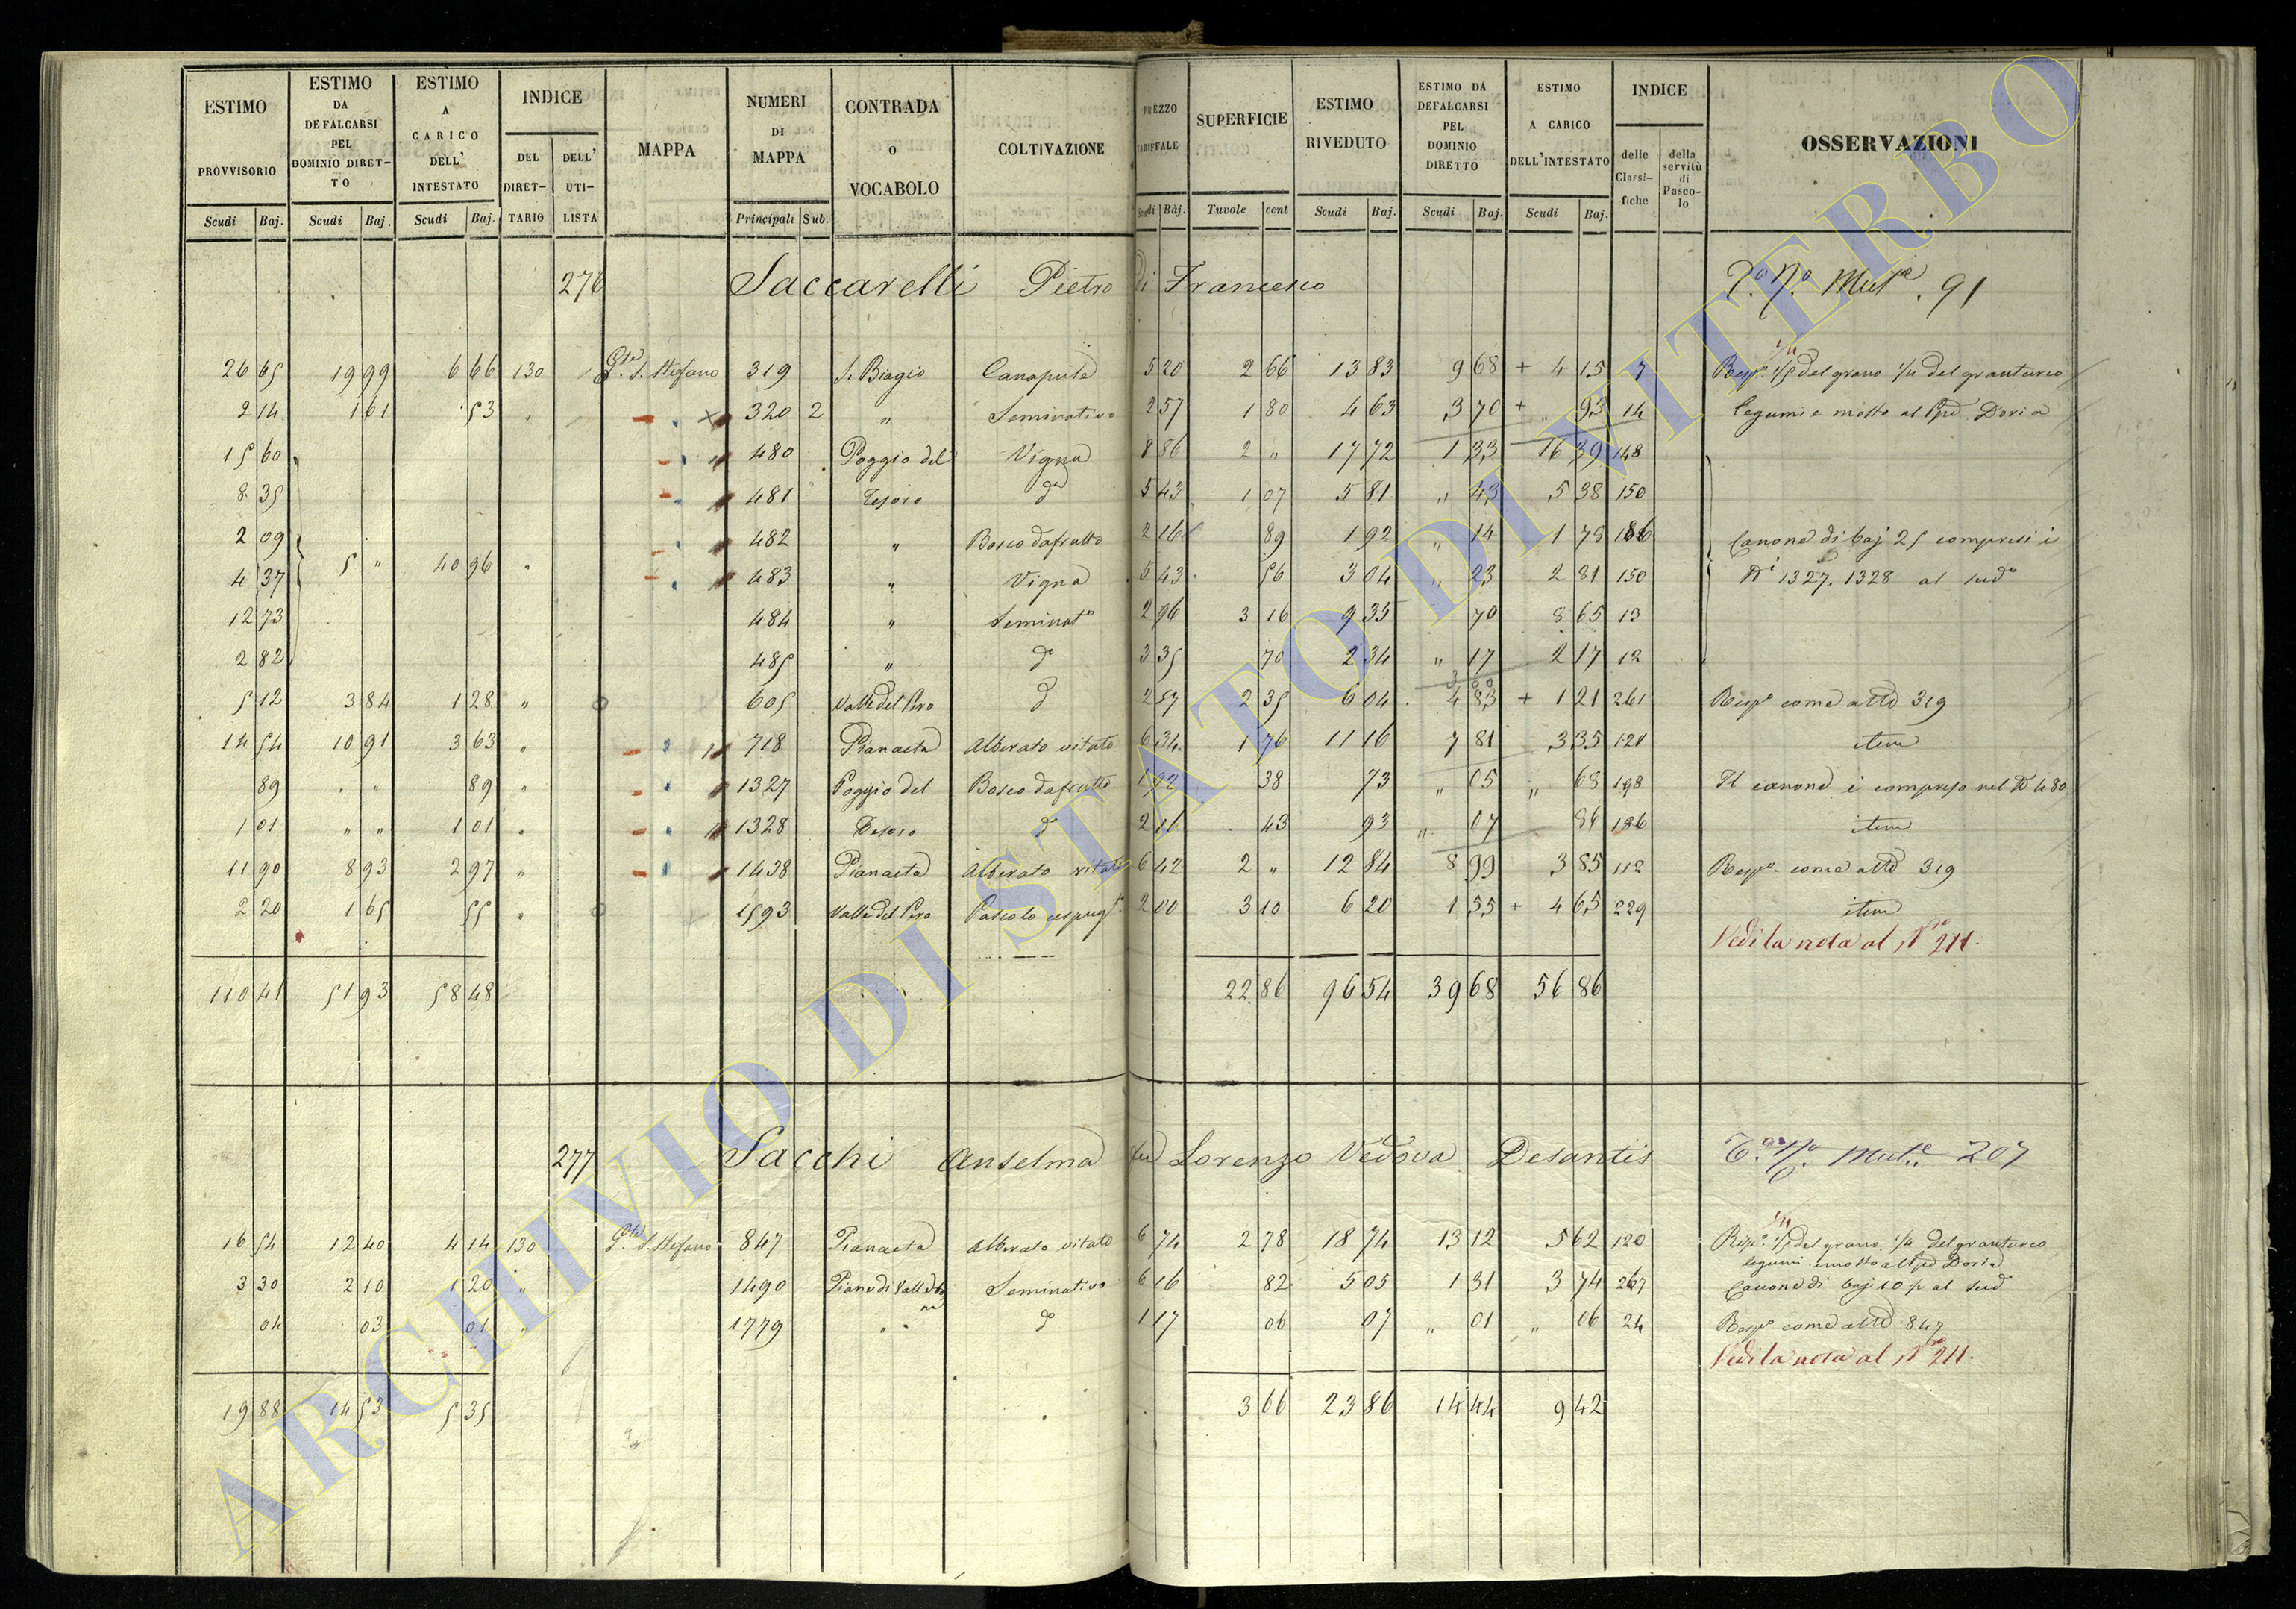 ESTIMO PROVVISORIO Scudi Baj. | ESTIMO DA DEFALCARSI PEL DOMINIO DIRETTO Scudi Baj. | ESTIMO A CARICO DELL'INTESTATO Scudi Baj. | INDICE DEL DIRETTARIO DELL'UTILISTA | MAPPA | NUMERI DI MAPPA Principali Sub. | CONTRADA O VOCABOLO | COLTIVAZIONE | PREZZO TARIFFALE Scudi Baj. | SUPERFICIE Tavole cent | ESTIMO RIVEDUTO Scudi Baj. | ESTIMO DA DEFALCARSI PEL DOMINIO DIRETTO Scudi Baj. | ESTIMO A CARICO DELL'INTESTATO Scudi Baj. | INDICE delle Classifiche della servitù di Pascolo | OSSERVAZIONI
276 Saccarelli Pietro di Francesco 91
26 65 19 99 6 66 130 S. Stefano 319 S. Biagio Canapule 5 20 2 66 13 83 9 68 + 4 15 7 Risp. 1/5 del grano 1/4 del granturco
2 14 1 61 53 " 320 2 " Seminativo 2 57 1 80 4 63 3 70 + " 93 14 legumi e mosto al Doria
15 60 480 Poggio del Vigna 8 86 2 " 17 72 1 33 16 39 148
8 35 481 Tesoro do 5 43 1 07 5 81 " 43 5 38 150
2 09 482 " Bosco da frutto 2 16 89 1 92 " 14 1 78 186 Canone di baj 25 compresi i
5 " 40 96 "
4 37 483 " Vigna 5 43 56 3 04 " 23 2 81 150 Ni 1327. 1328 al sudo
12 73 484 " Seminato 2 96 3 16 9 35 70 8 65 13
2 82 485 " do 3 35 70 2 34 " 17 2 17 12
5 12 3 84 1 28 " 605 Valle del Pero do 2 57 2 35 6 04 4 83 + 1 21 261 Rispa come al No 319
14 54 10 91 3 63 " 718 Pianaeta Alberato vitato 6 34 1 76 11 16 7 81 3 35 121 item
89 " " 89 " 1327 Poggio del Bosco da frutto 1 92 38 73 " 05 " 68 198 Il canone è compreso nel No 480
1 01 " " 1 01 " 1328 Tesoro do 2 16 43 93 " 07 86 186 item
11 90 8 93 2 97 " 1438 Pianaeta Alberato vitato 6 42 2 " 12 84 8 99 3 85 112 Rispa come al No 319
2 20 1 65 55 " 1593 Valle del Pero Pascolo cespugto 2 00 3 10 6 20 1 55 + 4 65 229 item
Vedi la nota al No 211.
110 41 51 93 58 48 22 86 96 54 39 68 56 86
277 Sacchi Anselma fu Lorenzo Vedova Desantis 207
16 54 12 40 4 14 130 S. Stefano 847 Pianaeta Alberato vitato 6 74 2 78 18 74 13 12 5 62 120 Rispa 1/5 del grano, 1/4 del granturco
legumi e mosto al Doria
3 30 2 10 1 20 " 1490 Piano di Seminativo 6 16 82 5 05 1 31 3 74 267 Canone di baj 10 al sud
04 03 01 " 1779 " " do 1 17 06 07 " 01 " 06 24 Rispa come al No 847
Vedi la nota al No 211.
19 88 14 53 5 35 3 66 23 86 14 44 9 42
ARCHIVIO DI STATO DI VITERBO